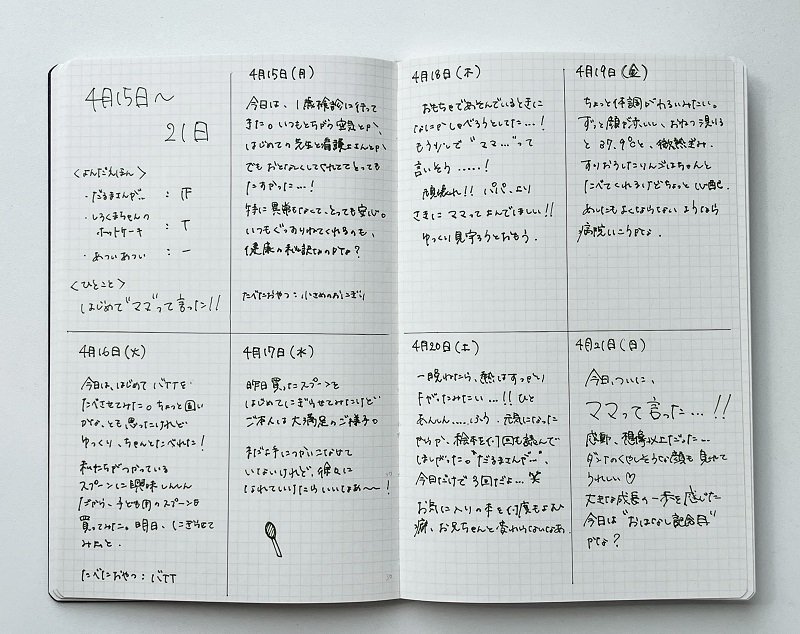 4月15日〜
21日
<よんだえほん>
・だるまさんが… : 正
・しろくまちゃんの
ホットケーキ : T
・あつい あつい : 一
<ひとこと>
はじめて"ママ"って言った!!
4月15日(月)
今日は、1歳検診に行って
きた。いつもとちがう空気とか、
はじめての先生と看護士さんとか
でも おとなしくしてくれてて とっても
たすかった…!
特に異常もなくて、とっても安心。
いつもぐっすりねてくれるのも、
健康の秘訣なのかな?
たべたおやつ:小さめのおにぎり
4月16日(火)
今日は、はじめて バナナを
たべさせてみた。ちょっと固い
かな、とも思ったけれど
ゆっくり、ちゃんとたべれた!
私たちがつかっている
スプーンに興味しんしん
だから、子ども用のスプーンを
買ってみた。明日、にぎらせて
みよっと.
たべたおやつ:バナナ
4月17日(水)
昨日買ったスプーンを
はじめてにぎらせてみたけど
ご本人は大満足のご様子。
まだ上手につかいこなせて
いないけれど、徐々に
なれていけたらいいなぁ〜!
4月18日(木)
おもちゃであそんでいるときに
なにかしゃべろうとしてた…!
もう少しで "ママ…"って
言いそう……!
頑張れ!! パパ、より
さきに ママって よんでほしい!!
ゆっくり見守ろうとおもう.
4月19日(金)
ちょっと体調がわるいみたい。
ずっと顔が赤いし、おねつ測る
と37.9℃と、微熱ぎみ.
すりおろしたりんごはちゃんと
たべてくれるけどちょっと心配.
あしたもよくならない ようなら
病院いこうかな.
4月20日(土)
一晩ねたら、熱はすっかり
下がったみたい…!! ひと
あんしん….ふぅ. 元気になった
からか、絵本を何回も読んで
ほしがった。"だるまさんが…",
今日だけで3回だよ…笑
お気に入りの本を何度もよむ
癖、お兄ちゃんと変わらないなぁ.
4月21日(日)
今日、ついに、
ママって言った…!!
感動、想像以上だった…
ダンナのくやしそうな顔も見れて
うれしい♡
大きな成長の一歩を感じた
今日は"おはなし記念日"
かな?